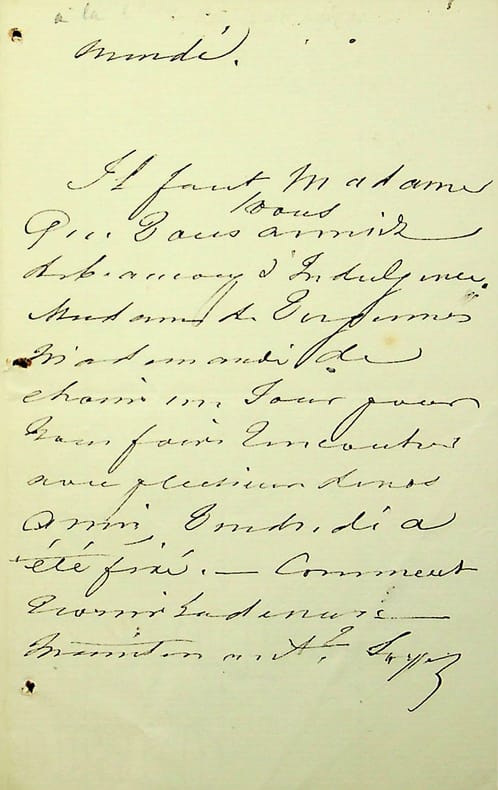 à la
mardi.
Il faut Madame
vous
Que Vous armiez
de beaucoup d'Indulgence.
Madame de Vergennes
M'a demandé de
choisir un Jour pour
nous faire rencontrer
avec plusieurs de nos
Amis, Vendredi a
été fixé. — Comment
maintenant? Soyez